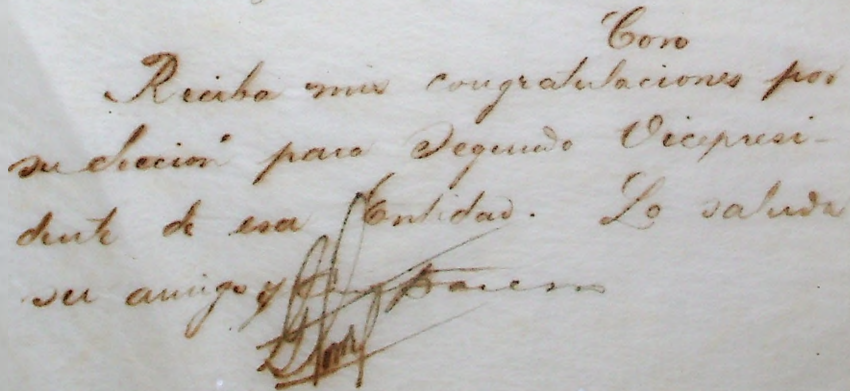 Coro
Reciba mis congratulaciones por
su elección para Segundo Vicepresi-
dente de esa Entidad. Lo saluda
su amigo y